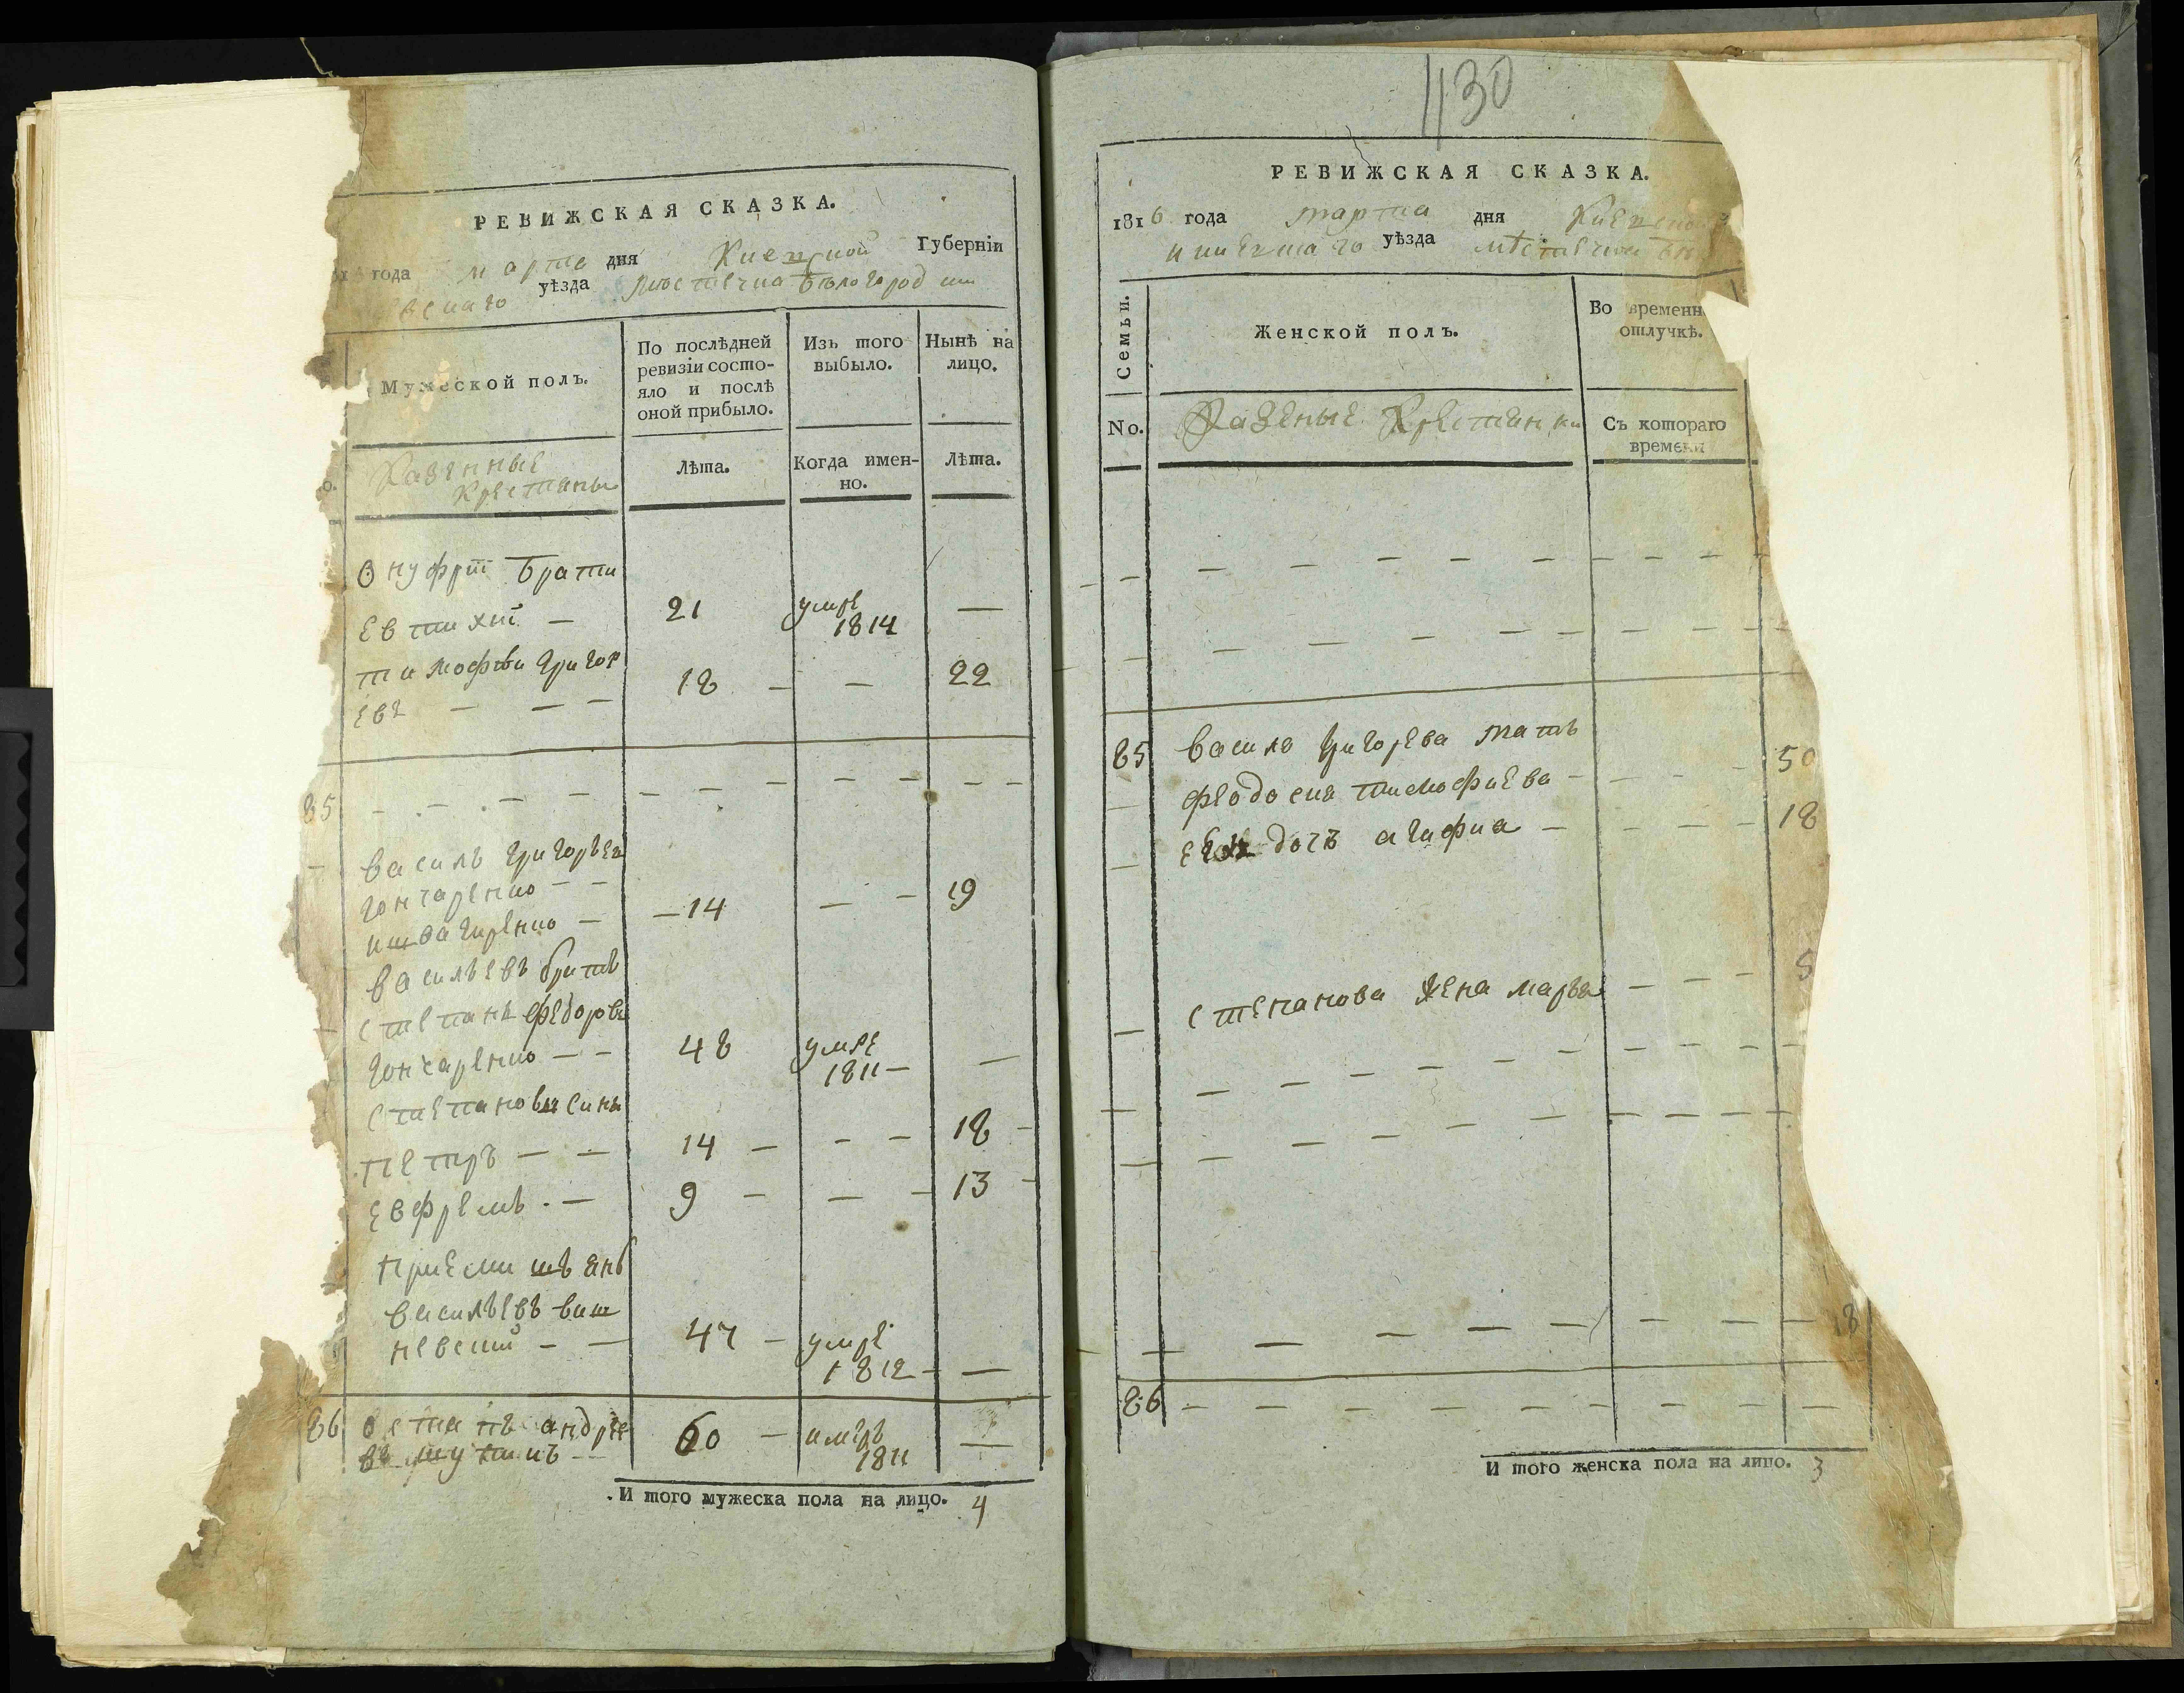 РЕВИЖСКАЯ СКАЗКА.
года марта дня Киевской Губерніи
уѣзда местечка Белогородки
Мужеской полъ.
По послѣдней ревизіи состояло и послѣ оной прибыло.
Изъ того выбыло.
Нынѣ на лицо.
Казенные Крестяны
Лѣта.
Когда именно.
Лѣта.
Онуфрій Брати
Евтихій — 21 умре 1814 —
Тимофѣи Григор
евъ — — — 18 — — 22
85 — — — — — — — — — —
Василъ Григорьев
Гончаренко — —
Ивагиренко — — 14 — — 19
Васильевъ братъ
Степанъ Федоровъ
Гончаренко — — 48 умре 1811 — —
Степановы сины
Петръ — — 14 — — — 18 —
Евфремъ . — 9 — — — 13 —
Василъевъ виш
невский — — 47 — умре 1812 — —
86 андрее
60 — умеръ 1811 —
И того мужеска пола на лицо. 4
1130
РЕВИЖСКАЯ СКАЗКА.
1816 года марта дня Киевской
уѣзда мѣстечка
Семьи.
Женской полъ.
Во временн отлучкѣ.
No.
Казеные Крестянки
Съ котораго времени
85 Василя Григорева мать
Феодосия Тимофиева — — — — 50
дочъ агафиа — — — — 18
Степанова жена маръя — — — 5
18
86 — — — — — — — — —
И того женска пола на лицо. 3